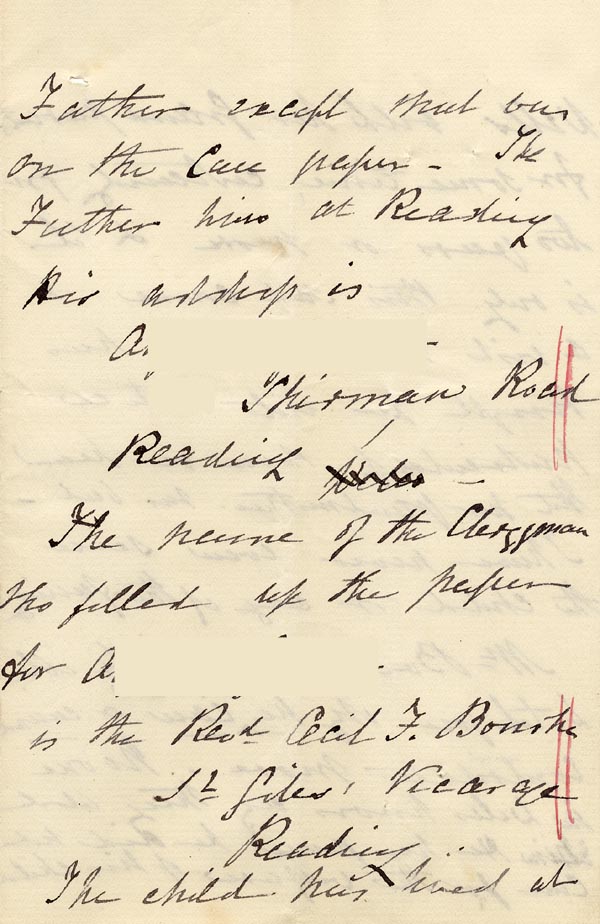 Father except that was
on the Case paper – The
Father lives at Reading
His address is
A.
Road
Reading
The name of the Clergyman
who filled up the paper
for A.
is the Revd. Cecil F. Bourke
St. Giles' Vicarage
Reading.
The child has lived at